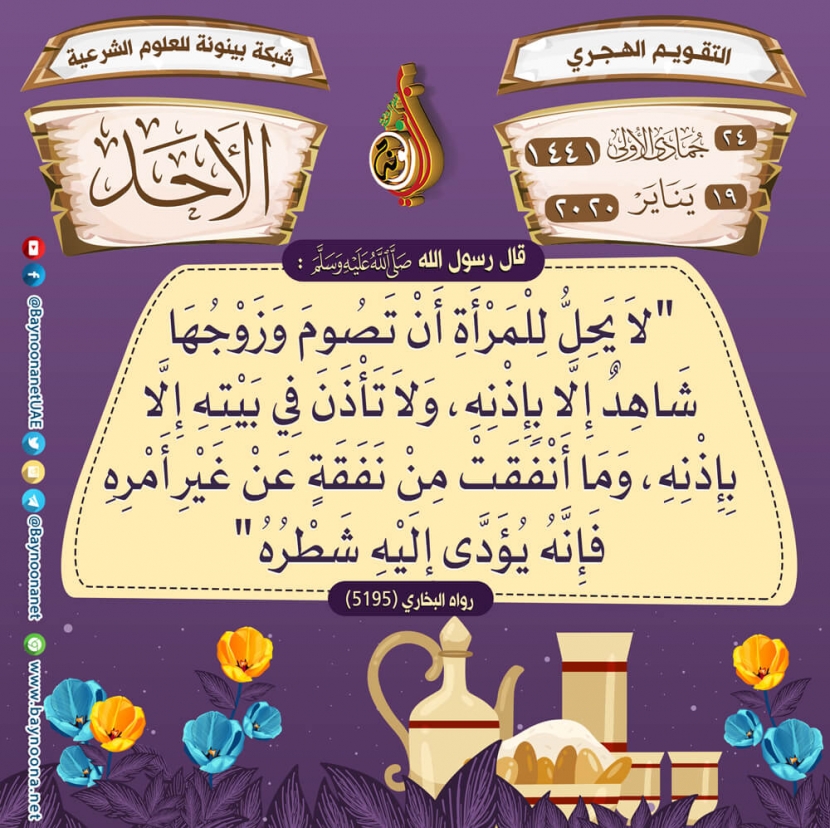 التقويم الهجري
شبكة بينونة للعلوم الشرعية
٢٤ جمادى الأولى ١٤٤١
١٩ يَنَايَر ٢٠٢٠
الأَحَد
قال رسول الله صَلَّى اللَّهُ عَلَيْهِ وَسَلَّمَ :
"لاَ يَحِلُّ لِلْمَرْأَةِ أَنْ تَصُومَ وَزَوْجُهَا
شَاهِدٌ إِلَّا بِإِذْنِهِ، وَلاَ تَأْذَنَ فِي بَيْتِهِ إِلَّا
بِإِذْنِهِ، وَمَا أَنْفَقَتْ مِنْ نَفَقَةٍ عَنْ غَيْرِ أَمْرِهِ
فَإِنَّهُ يُؤَدَّى إِلَيْهِ شَطْرُهُ"
رواه البخاري (5195)
@BaynoonanetUAE
@Baynoonanet
www.baynoona.net